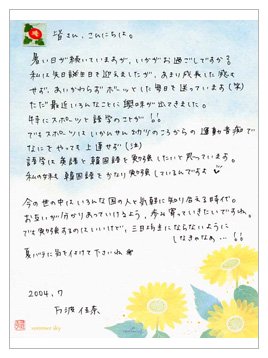 皆さん、こんにちは。
暑い日が続いていますが、いかがお過ごしですか?
私は先日誕生日を迎えましたが、あまり成長した気も
せず、あいかわらずボーッとした毎日を送っています(笑)
ただ最近いろんなことに興味が出てきました。
特にスポーツと語学のことが!!
でもスポーツはいかんせん切りのころからの運動音痴で
なにをやっても上達せず(泣)
語学は英語と韓国語を勉強したいと思っています。
私の妹も韓国語をかなり勉強しているんですよ
今の世の中はいろんな国の人と気軽に知り合える時代。
お互いが分かりあっていけるよう、歩み寄っていきたいですね。
でも勉強するのはいいけど、三日坊主にならないように
しなきゃなぁ…!!
夏バテに気を付けて下さいね
2004.7
石渡佳奈
summer sky